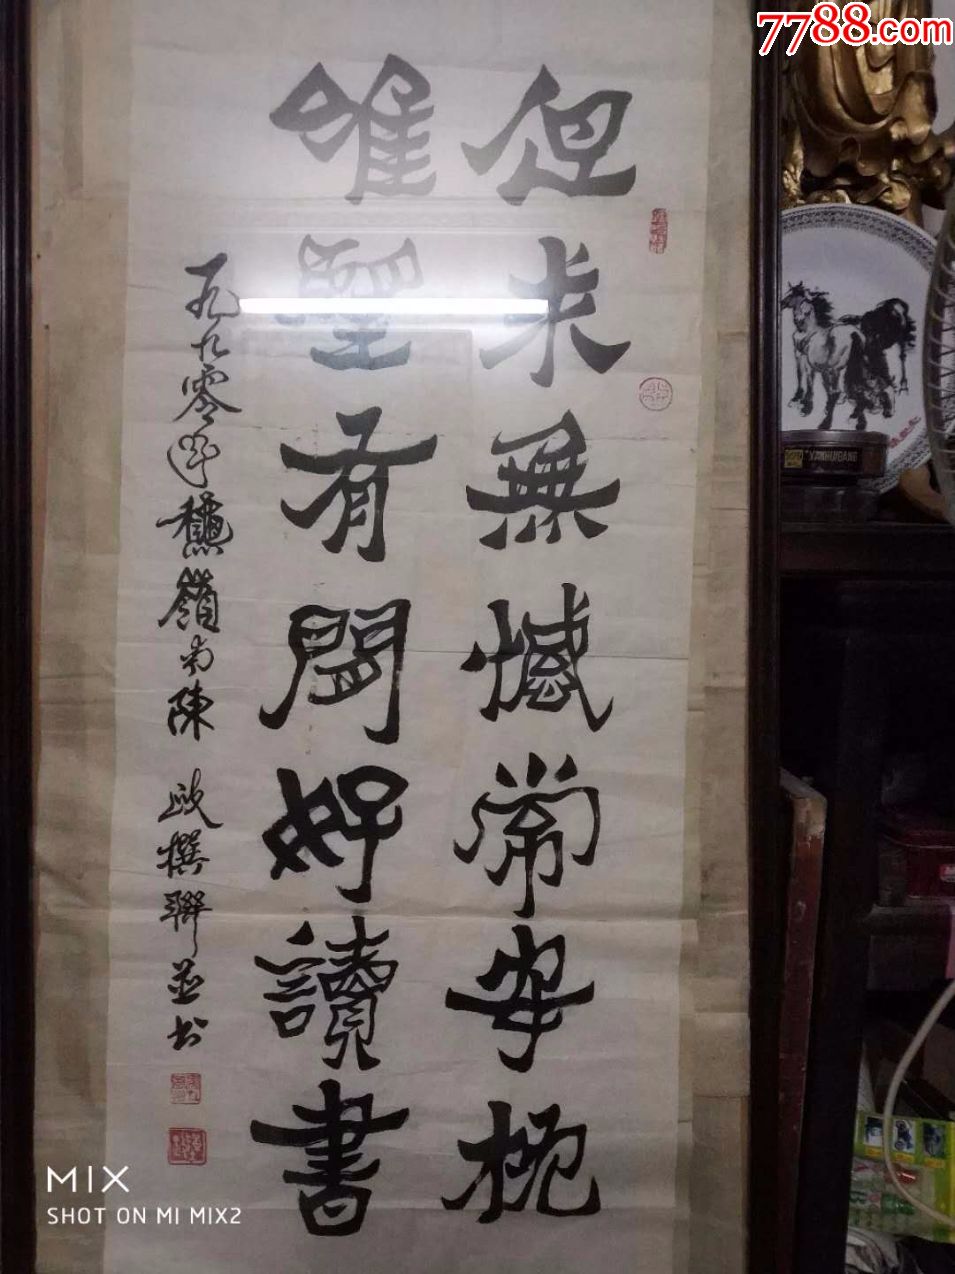 7788.com
但求無憾常安枕
唯望有閒好讀書
一九九零年穐嶺南陳
撰聯並書
YANHUIGANG
MIX
SHOT ON MI MIX2